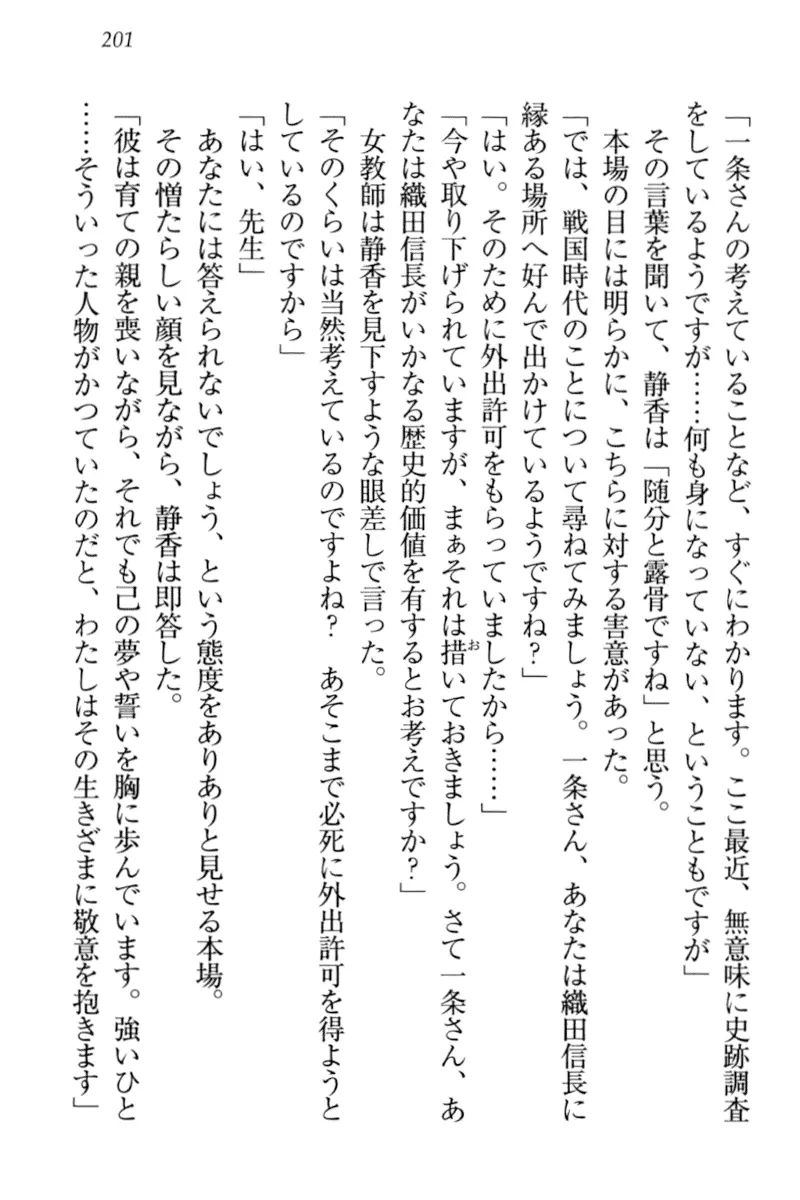 201
「一条さんの考えていることなど、すぐにわかります。ここ最近、無意味に史跡調査
をしているようですが……何も身になっていない、ということもですが」
その言葉を聞いて、静香は「随分と露骨ですね」と思う。
本場の目には明らかに、こちらに対する害意があった。
「では、戦国時代のことについて尋ねてみましょう。一条さん、あなたは織田信長に
縁ある場所へ好んで出かけているようですね？」
「はい。そのために外出許可をもらっていましたから……」
「今や取り下げられていますが、まぁそれは措いておきましょう。さて一条さん、あ
なたは織田信長がいかなる歴史的価値を有するとお考えですか？」
女教師は静香を見下すような眼差しで言った。
「そのくらいは当然考えているのですよね？　あそこまで必死に外出許可を得ようと
しているのですから」
「はい、先生」
あなたには答えられないでしょう、という態度をありありと見せる本場。
その憎たらしい顔を見ながら、静香は即答した。
「彼は育ての親を喪いながら、それでも己の夢や誓いを胸に歩んでいます。強いひと
……そういった人物がかつていたのだと、わたしはその生きざまに敬意を抱きます」